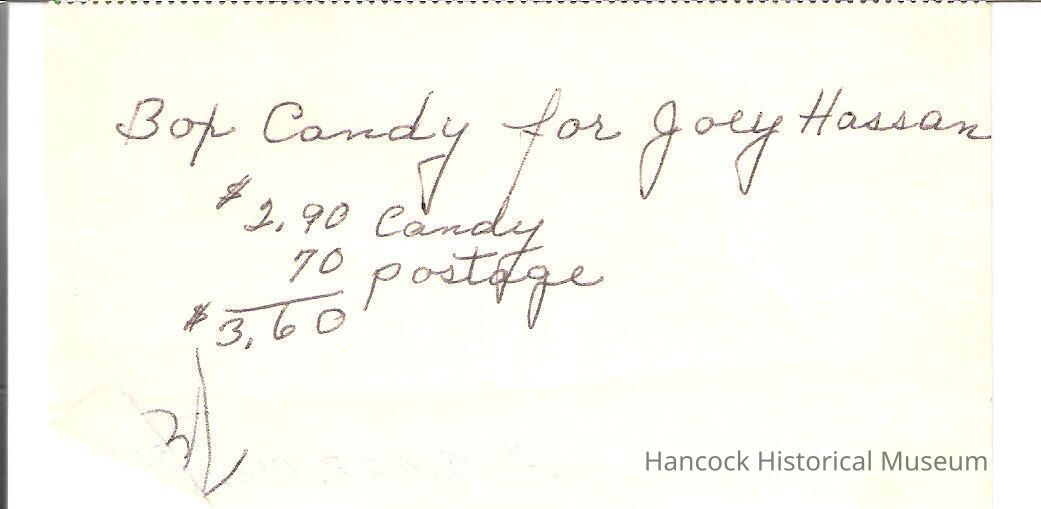 Box Candy for Joey Hassan
$2.90 Candy
70 postage
$3.60
Hancock Historical Museum